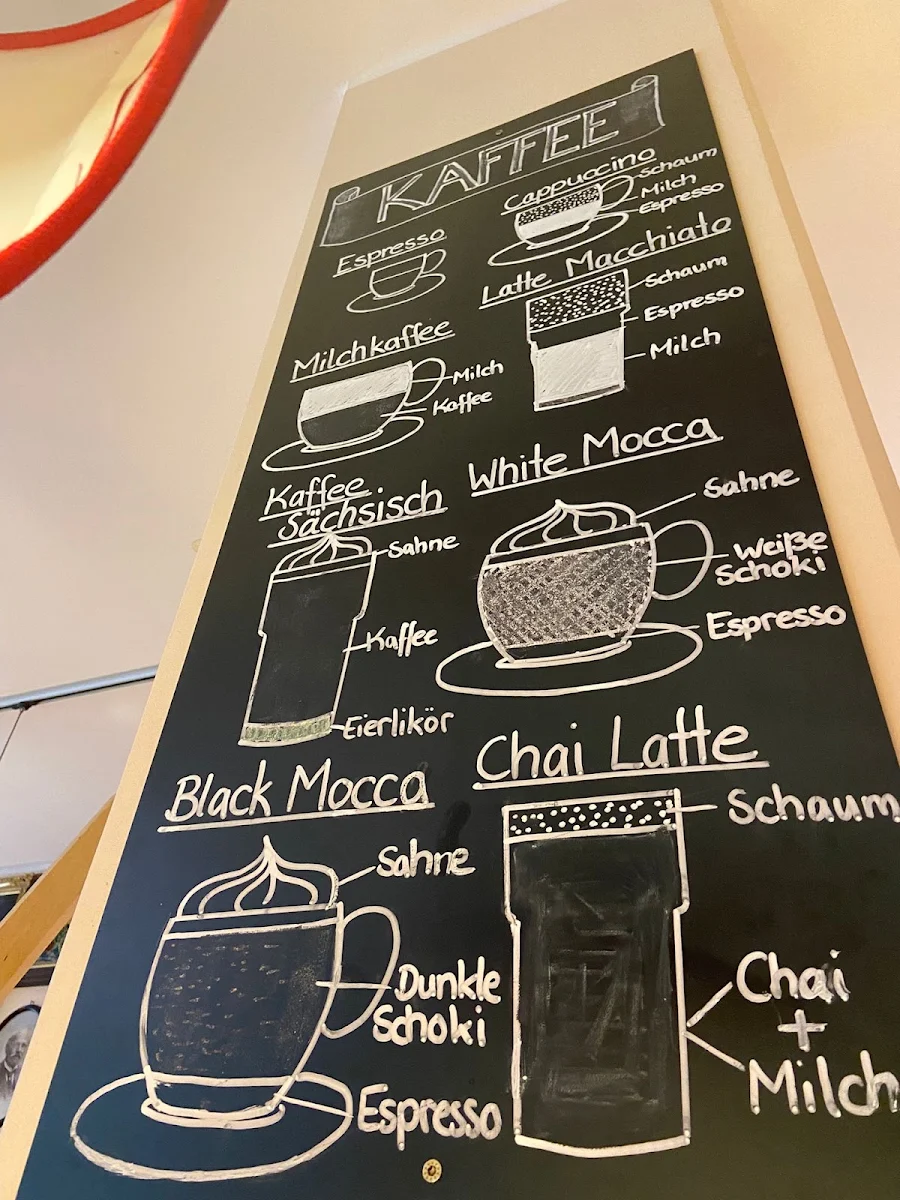 KAFFEE
Espresso
Cappuccino
Schaum
Milch
Espresso
Latte Macchiato
Schaum
Espresso
Milch
Milchkaffee
Milch
Kaffee
White Mocca
Sahne
Weiße
Schoki
Espresso
Kaffee
Sächsisch
Sahne
Kaffee
Eierlikör
Chai Latte
Schaum
Chai
+
Milch
Black Mocca
Sahne
Dunkle
Schoki
Espresso